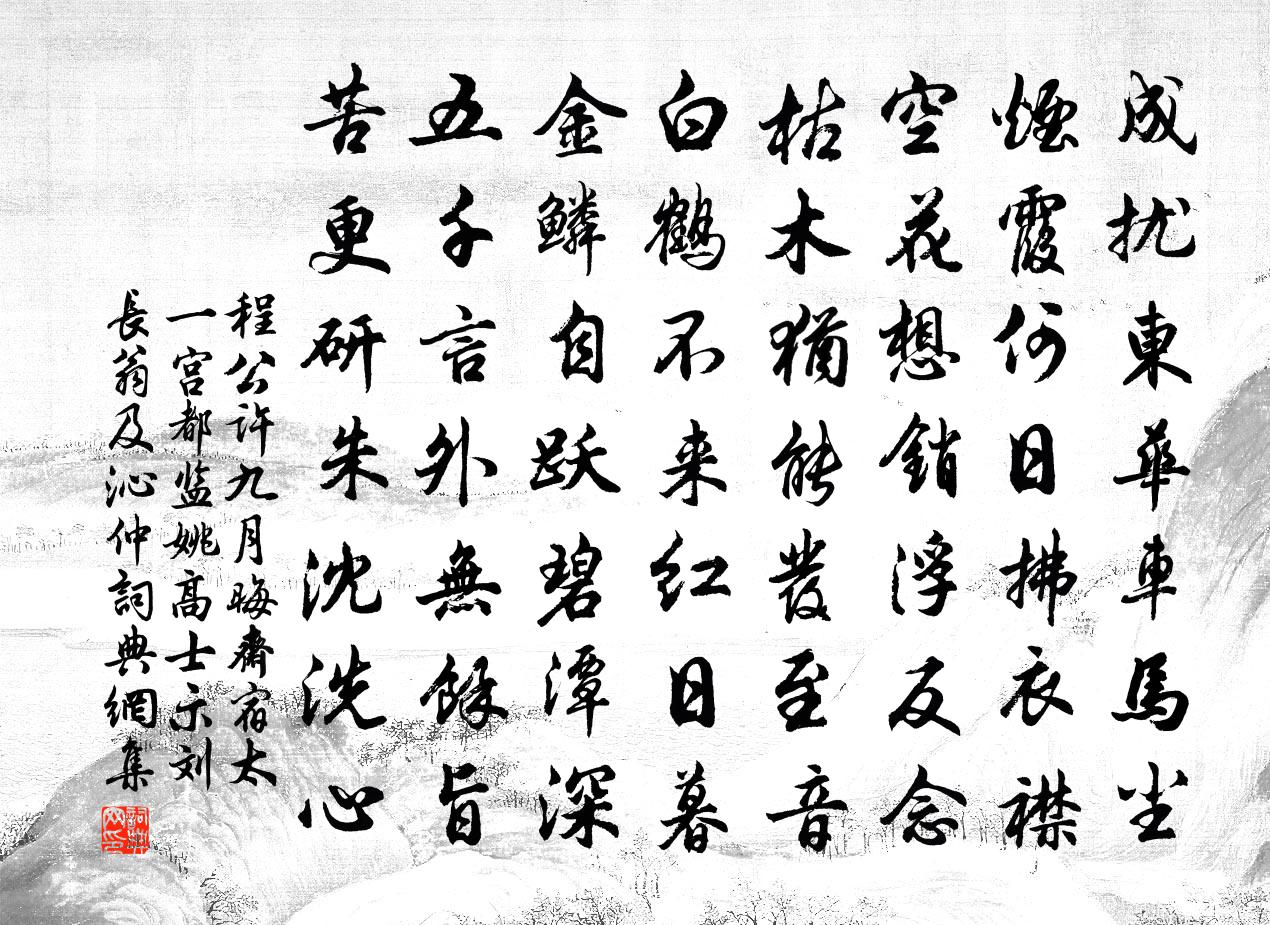 成扰東華車馬尘
煙霞何日拂衣襟
空花想銷浮反念
枯木猶能發至音
白鶴不来红日暮
金鳞自跃碧潭深
五千言外無餘旨
苦更研朱沈洗心
程公许九月晦齋宿太
一宫都监姚高士示刘
長翁及沁仲詞典網集